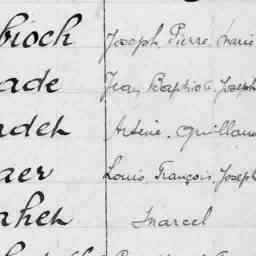 bioch Joseph, Pierre, Marie
ade Jean, Baptiste, Joseph
ndeh Arsène, Guillaume
aer Louis, François, Joseph
aheh Marcel